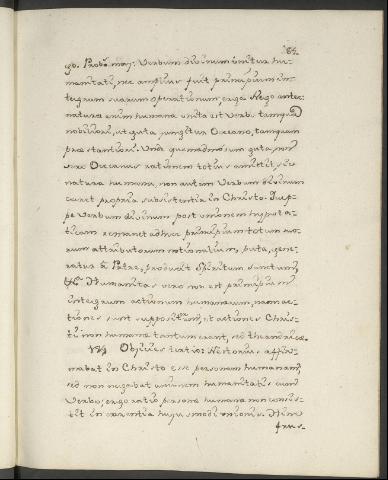 84.
go. Probo maj: Verbum divinum unitur hu-
manitati, nec amplius fuit principium in-
tegrum suarum operationum, ergo. Nego antec.
natura enim humana unita est Verbo tamquam
nobiliori, ut guta jungitur Oceano, tamquam
præstantiori. Unde quemadmodum guta, non
vero Oceanus rationem totius amittit, sic
natura humana, non autem Verbum divinum
caret propria subsistentia in Christo. Quip-
pe Verbum divinum post unionem hyposta-
ticam remanet adhuc principium totum suo-
rum attributorum notionalium, puta, gene-
ratur a Patre, producit Spiritum Sanctum,
Humanitas vero non est principium
integrum actionum humanarum, nam ac-
tiones sunt suppositorum, et actiones Chris-
ti non humanæ tantum erant, sed theandricæ.
Objicies tertio: Nestorius affir-
mabat in Christo esse personam humanam,
sed non negabat unionem humanitatis cum
Verbo, ergo ratio personæ humanæ non consis-
tit in carentia hujusmodi unionis. Hinc
frus-